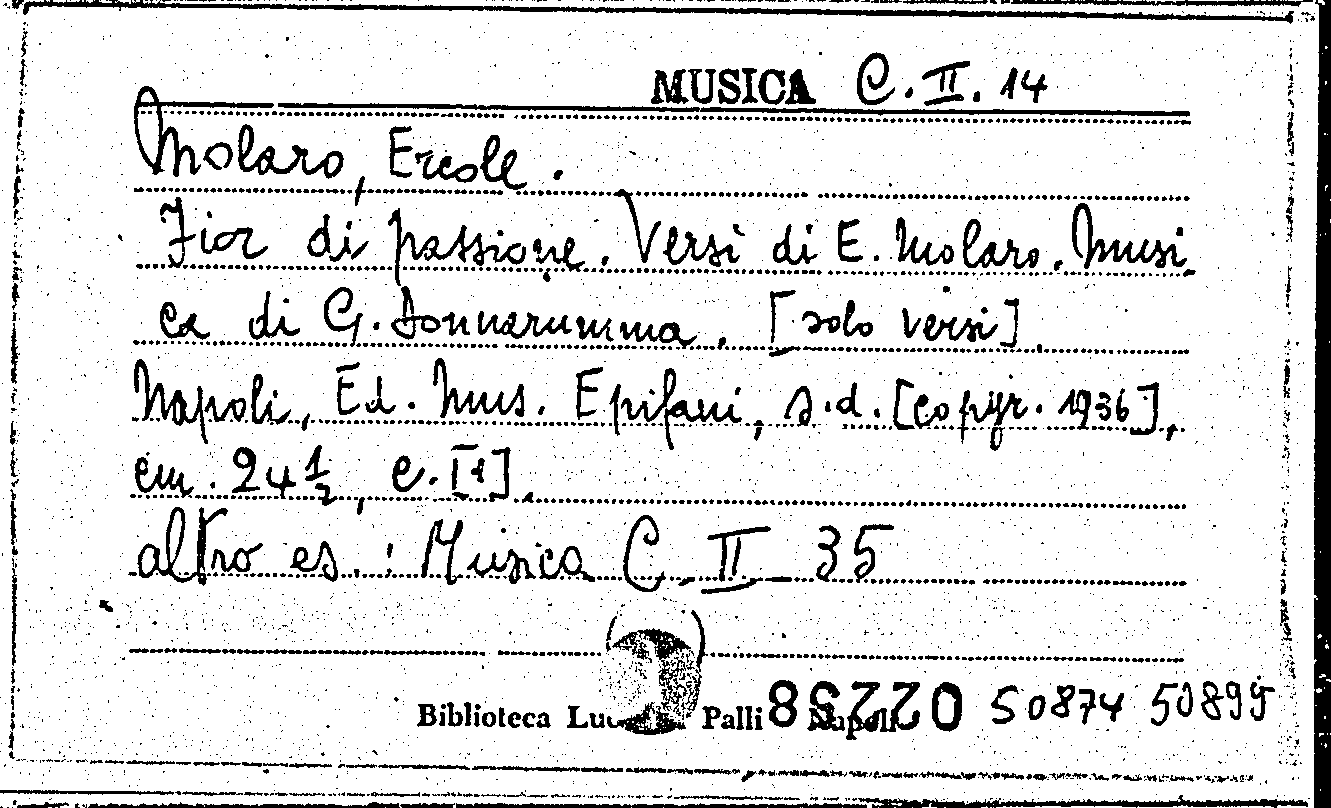 MUSICA C. II. 14
Molaro, Ercole.
Fior di passione. Versi di E. Molaro. Musi-
ca di G. Donnarumma. [solo versi].
Napoli, Ed. Mus. Epifani, s.d. [copyr. 1936],
cm. 24½, c. [1].
altro es.: Musica C. II 35
Biblioteca Palli Napoli 50874 50899